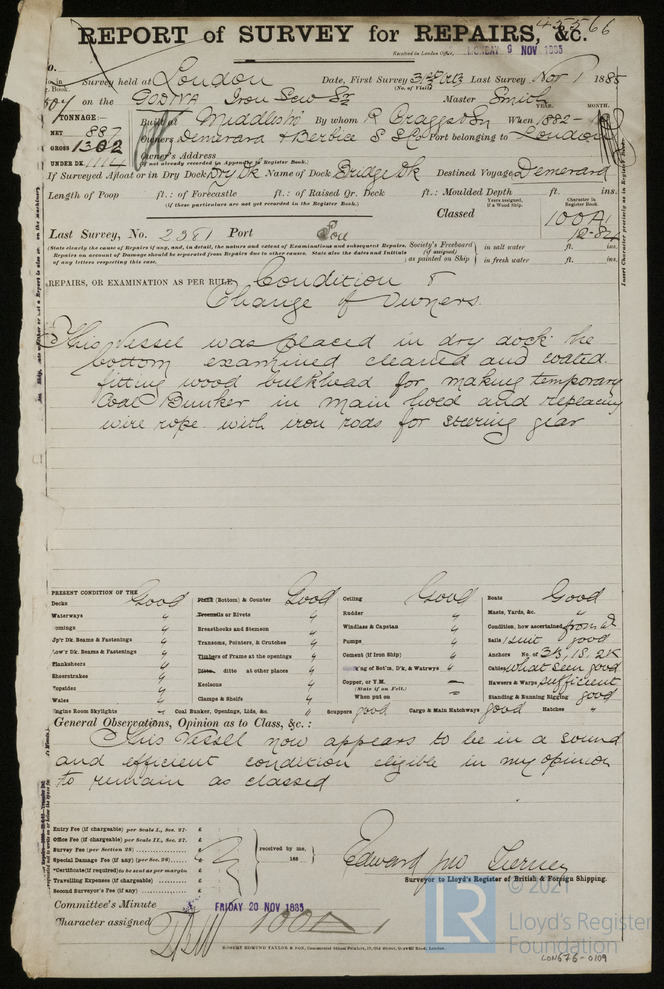 45566
REPORT of SURVEY for REPAIRS, &c.
Received in London Office, MONDAY 9 NOV. 1885
Survey held at London Date, First Survey Last Survey Nov 1 1885
(No. of Visits)
on the GODIVA Iron Scw Master Smith
TONNAGE:— Built at Middlesbro' By whom R Craggs & Sn When 1882 -
YEAR. MONTH.
NET 887
GROSS 1302
Owners Demerara & Berbice S S Co Port belonging to London
UNDER DK.
Owner's Address
(if not already recorded in Appendix to Register Book.)
If Surveyed Afloat or in Dry Dock Dry Dk Name of Dock Bridge Dk Destined Voyage Demerara
Length of Poop ft.: of Forecastle ft.: of Raised Qr. Deck ft.: Moulded Depth ft. ins.
(if these particulars are not yet recorded in the Register Book.)
Years assigned, if a Wood Ship.
Character in Register Book.
Classed 100A1
12-84
Last Survey, No. 2381 Port Lon
(State clearly the cause of Repairs if any, and, in detail, the nature and extent of Examinations and subsequent Repairs.
Repairs on account of Damage should be separated from Repairs due to other causes. State also the dates and Initials
of any letters respecting this case.
Society's Freeboard (if assigned) as painted on Ship
in salt water ft. ins.
in fresh water ft. ins.
REPAIRS, OR EXAMINATION AS PER RULE, Condition &
Change of Owners.
This Vessel was placed in dry dock the
bottom examined cleaned and coated
fitting wood bulkhead for making temporary
Coal Bunker in main hold and replacing
wire rope with iron rods for steering gear
PRESENT CONDITION OF THE
Decks Good (Bottom) & Counter Good Ceiling Good Boats Good
Waterways " Treenails or Rivets " Rudder " Masts, Yards, &c. "
Comings " Breasthooks and Stemson " Windlass & Capstan " Condition, how ascertained from dk
Up'r Dk. Beams & Fastenings " Transoms, Pointers, & Crutches " Pumps " Sails 1 suit good
Low'r Dk. Beams & Fastenings " Timbers of Frame at the openings " Cement (if Iron Ship) " Anchors No. of 3B, 1S, 2K
Planksheers " Ditto ditto at other places " Caulking of Bot'm, D'k, & Watrwys " Cables what seen good
Sheerstrakes " Keelsons " Copper, or Y.M. — Hawsers & Warps sufficient
(State if on Felt.)
Topsides " Clamps & Shelfs " When put on — Standing & Running Rigging good
Wales "
Engine Room Skylights " Coal Bunker, Openings, Lids, &c. " Scuppers good Cargo & Main Hatchways good Hatches "
General Observations, Opinion as to Class, &c.:
This Vessel now appears to be in a sound
and efficient condition eligible in my opinion
to remain as classed
Entry Fee (if chargeable) per Scale I., Sec. 27. £
Office Fee (if chargeable) per Scale II., Sec. 27. £
Survey Fee (per Section 28) £
Special Damage Fee (if any) (per Sec. 28) £
*Certificate (if required) to be sent as per margin
Travelling Expenses (if chargeable) £
Second Surveyor's Fee (if any) £
received by me,
188
Edward Jno Tierney
Surveyor to Lloyd's Register of British & Foreign Shipping.
Committee's Minute FRIDAY 20 NOV 1885
Character assigned 100A1
ROBERT EDMUND TAYLOR & SON,
© 2021
LR
Lloyd's Register
Foundation
LON676-0109